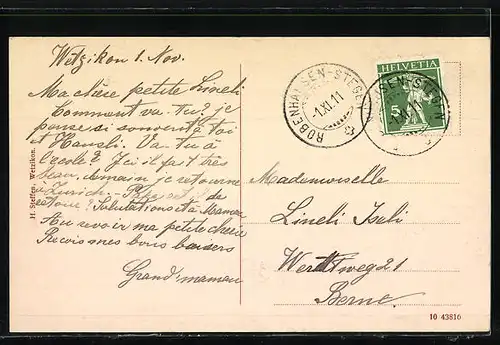 Wetzikon 1. Nov.
Ma chère petite Lineli
Comment va-tu? je
pense si souvent à toi
et Hansli. Va-tu à
l'école? Ici il fait très
beau, demain je retourne
à Zurich
retour? Salutations à ta Maman
Au revoir ma petite chérie
Reçois mes bons baisers
Grand'maman
H. Steffen, Wetzikon.
ROBENHAUSEN-STEGEN
-1.XI.11
HELVETIA
5
Mademoiselle
Lineli Iseli
Werdtweg 21
Berne.
10 43816